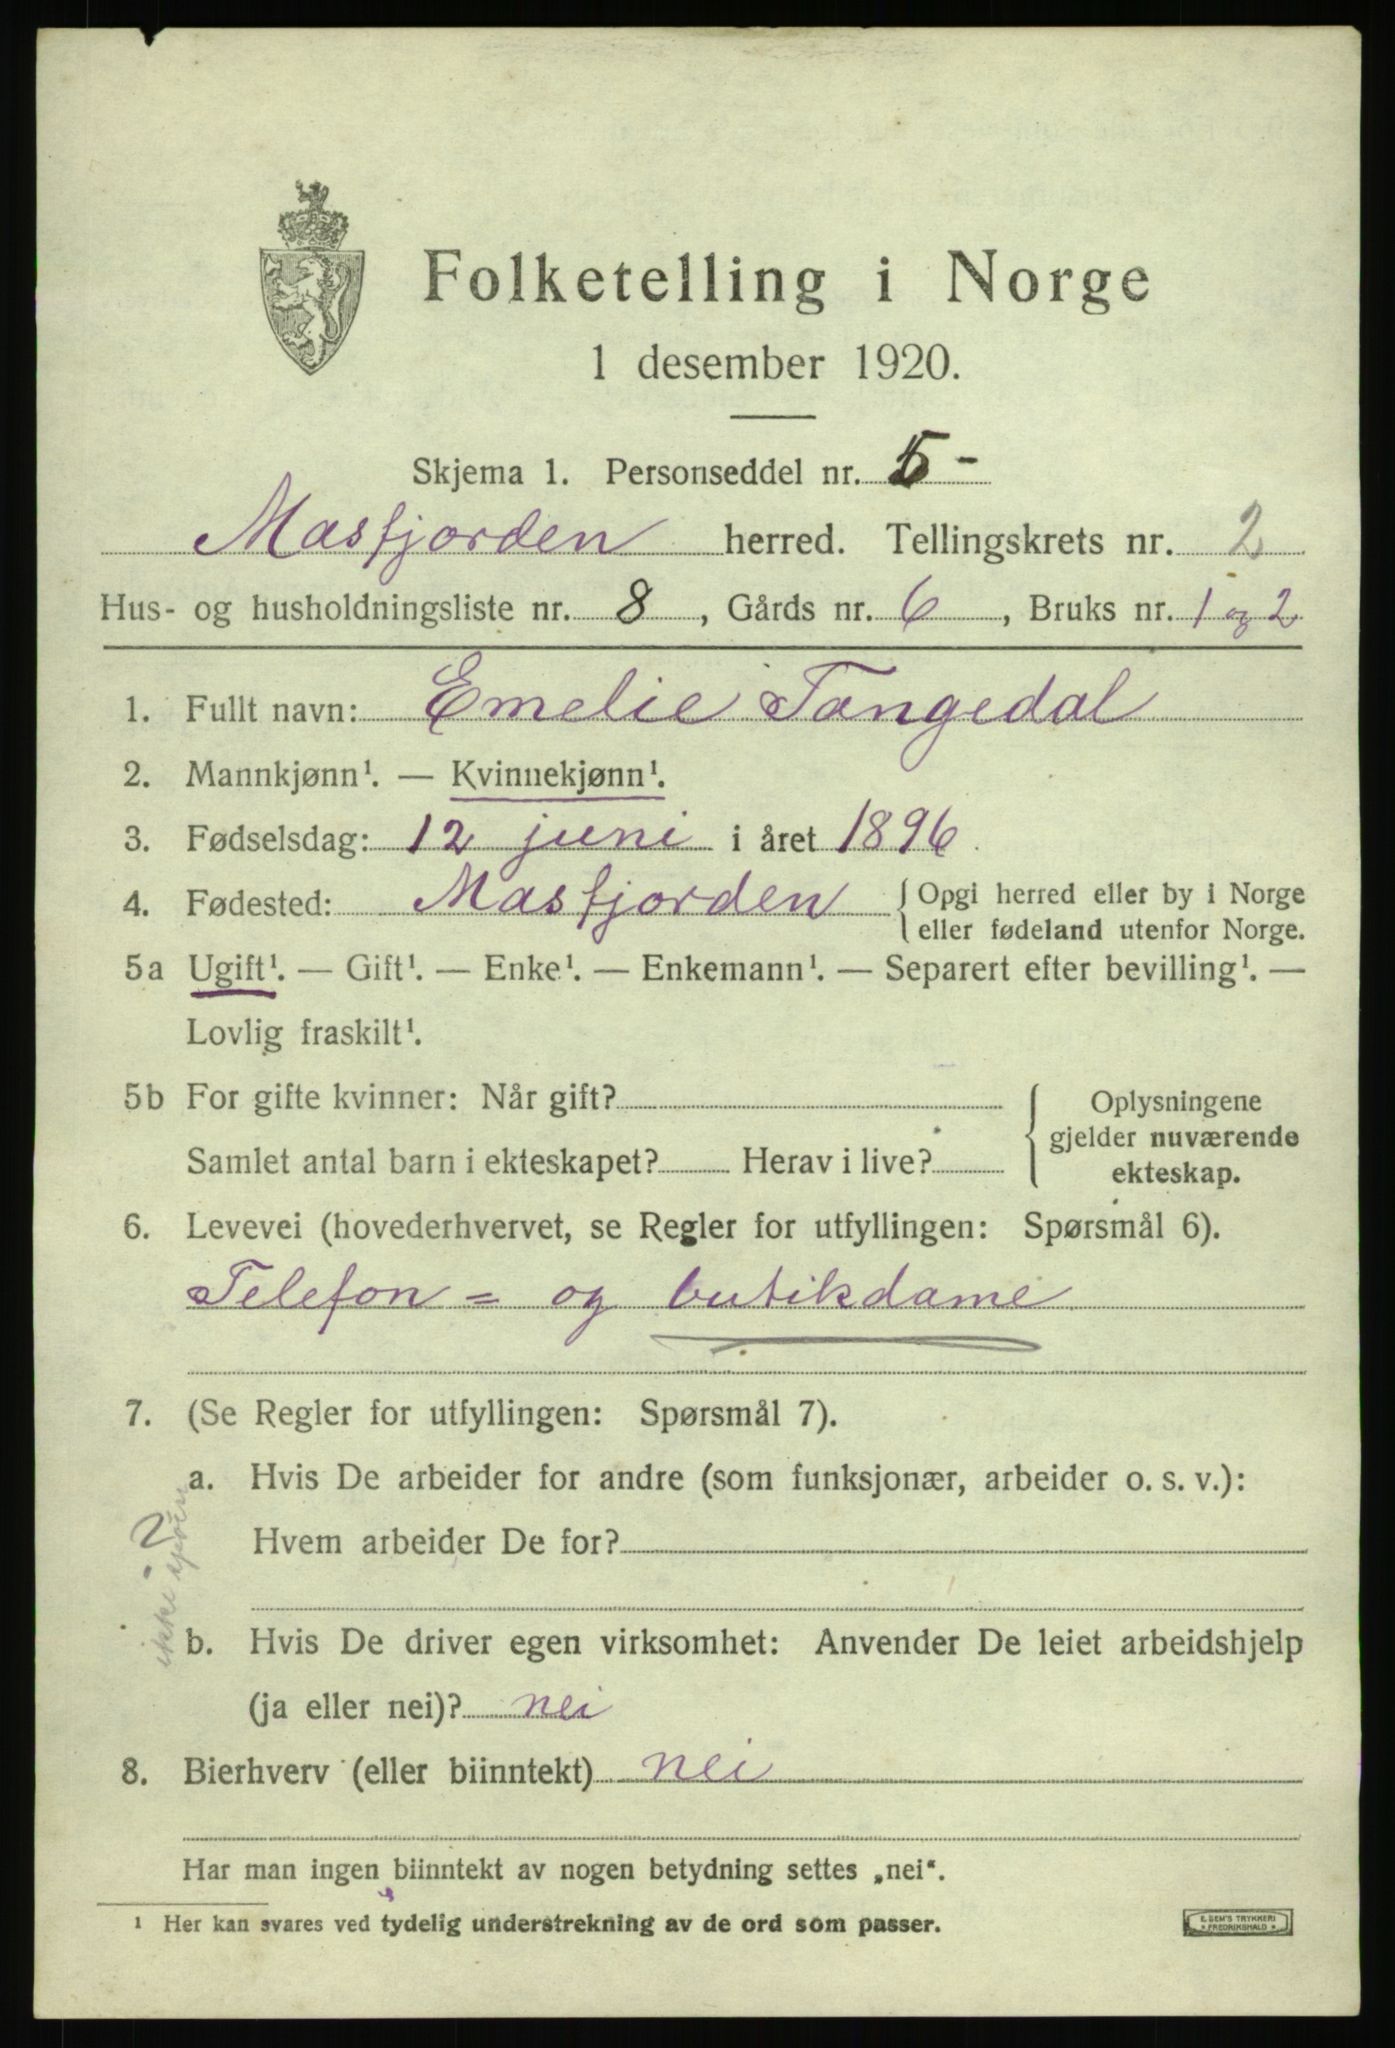 Folketelling i Norge
1 desember 1920.
Skjema 1. Personseddel nr. 5 -
Masfjorden herred. Tellingskrets nr. 2
Hus- og husholdningsliste nr. 8, Gårds nr. 6, Bruks nr. 1 og 2
1. Fullt navn: Emelie Tangedal
2. Mannkjønn¹. — Kvinnekjønn¹.
3. Fødselsdag: 12 juni i året 1896.
4. Fødested: Masfjorden { Opgi herred eller by i Norge
eller fødeland utenfor Norge.
5a Ugift¹. — Gift¹. — Enke¹. — Enkemann¹. — Separert efter bevilling¹. —
Lovlig fraskilt¹.
5b For gifte kvinner: Når gift?
Samlet antal barn i ekteskapet? Herav i live?
{ Oplysningene
gjelder nuværende
ekteskap.
6. Levevei (hovederhvervet, se Regler for utfyllingen: Spørsmål 6).
Telefon = og butikdame
7. (Se Regler for utfyllingen: Spørsmål 7).
a. Hvis De arbeider for andre (som funksjonær, arbeider o. s. v.):
Hvem arbeider De for?
?
ikke
b. Hvis De driver egen virksomhet: Anvender De leiet arbeidshjelp
(ja eller nei)? nei
8. Bierhverv (eller biinntekt) nei
Har man ingen biinntekt av nogen betydning settes „nei“.
¹ Her kan svares ved tydelig understrekning av de ord som passer.
E. SEM'S TRYKKERI
* FREDRIKSHALD *